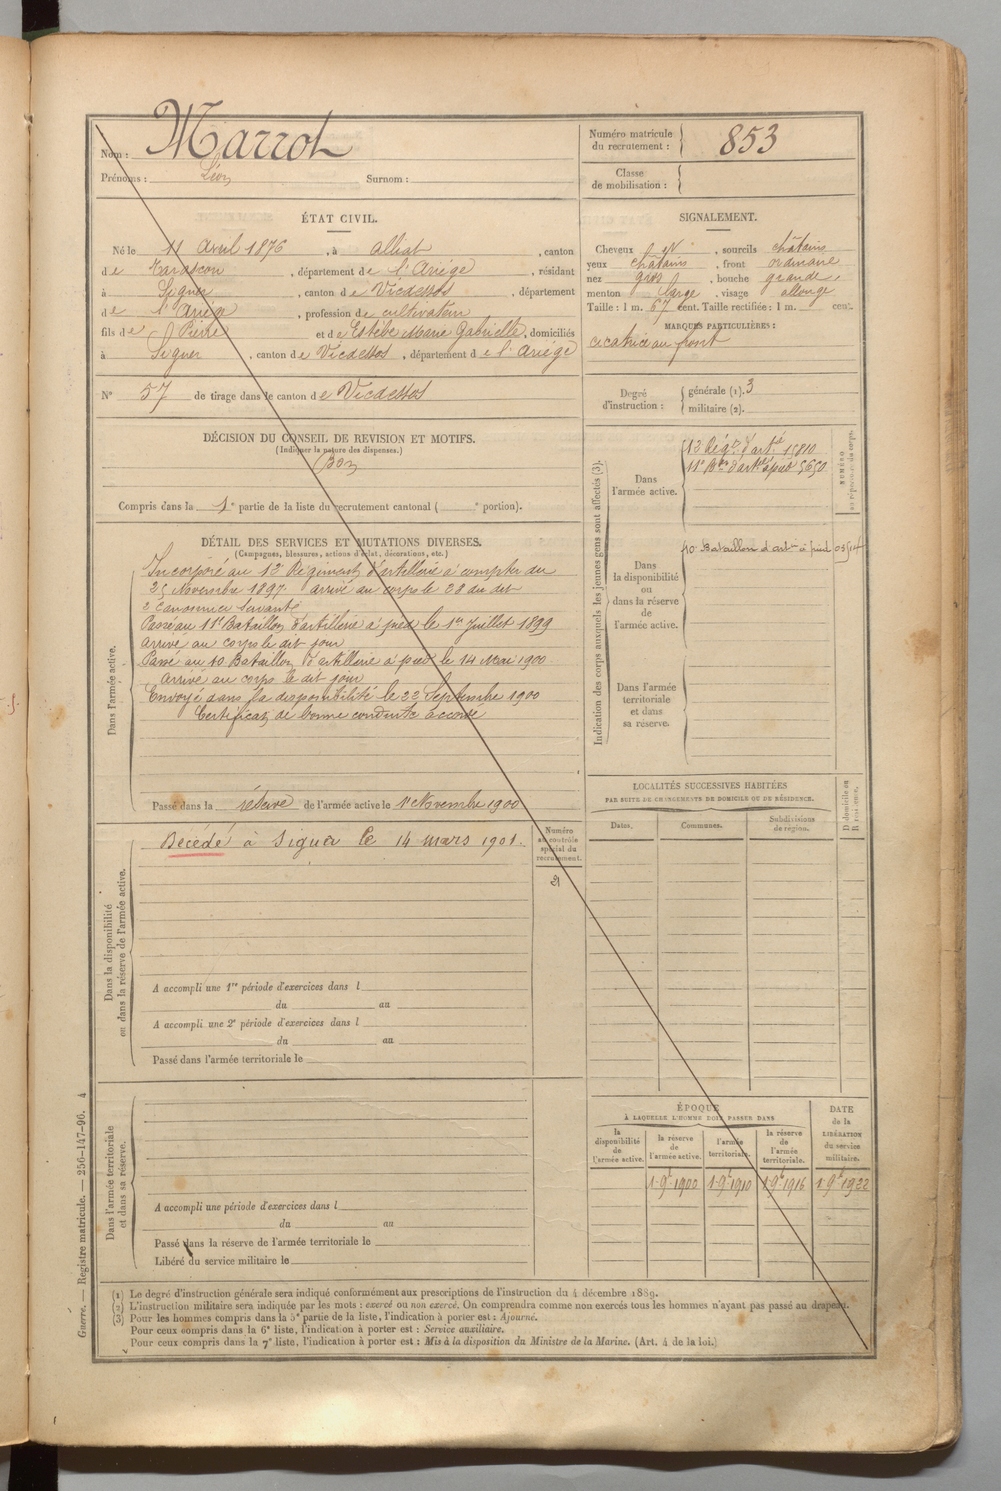 Nom : Marrot
Prénoms : Léon Surnom :
Numéro matricule
du recrutement : 853
Classe
de mobilisation :
ÉTAT CIVIL.
Né le 11 Avril 1876, à alliat, canton
de Tarascon, département de l'Ariège, résidant
à Siguer, canton de Vicdessos, département
de l'Ariège, profession de cultivateur
fils de Pierre et de Estèbe Marie Gabrielle, domiciliés
à Siguer, canton de Vicdessos, département de l'Ariège
N° 57 de tirage dans le canton de Vicdessos
SIGNALEMENT.
Cheveux , sourcils châtains
yeux châtains, front ordinaire
nez gros, bouche grande
menton large, visage allongé
Taille : 1 m. 67 cent. Taille rectifiée : 1 m. cent.
MARQUES PARTICULIÈRES :
cicatrice au front
Degré
d'instruction :
générale (1). 3
militaire (2).
DÉCISION DU CONSEIL DE REVISION ET MOTIFS.
(Indiquer la nature des dispenses.)
Bon
Compris dans la 1e partie de la liste du recrutement cantonal ( e portion).
DÉTAIL DES SERVICES ET MUTATIONS DIVERSES.
(Campagnes, blessures, actions d'éclat, décorations, etc.)
Dans l'armée active.
Incorporé au 13e Régiment d'artillerie à compter du
25 Novembre 1897. arrivé au corps le 28 du dit
2e Canonnier Servant
Passé au 11e Bataillon d'artillerie à pied le 1er Juillet 1899
Arrivé au corps le dit jour
Passé au 10 Bataillon d'artillerie à pied le 14 Mai 1900
Arrivé au corps le dit jour
Envoyé dans la disponibilité le 22 Septembre 1900
Certificat de bonne conduite accordé
Passé dans la réserve de l'armée active le 1er Novembre 1900
Indication des corps auxquels les jeunes gens sont affectés (3).
NUMÉRO
au répertoire du corps.
Dans
l'armée active.
13 Régt d'artie 15810
11e Bon d'artie à pied 5650
Dans
la disponibilité
ou
dans la réserve
de
l'armée active.
10e Bataillon d'artie à pied
Dans l'armée
territoriale
et dans
sa réserve.
Dans la disponibilité
ou dans la réserve de l'armée active.
Décédé à Siguer le 14 mars 1901.
Numéro
au contrôle
spécial du
recrutement.
A accompli une 1re période d'exercices dans l
du au
A accompli une 2e période d'exercices dans l
du au
Passé dans l'armée territoriale le
LOCALITÉS SUCCESSIVES HABITÉES
PAR SUITE DE CHANGEMENTS DE DOMICILE OU DE RÉSIDENCE.
Dates. Communes. Subdivisions
de région.
D domicile ou
R résidence.
Dans l'armée territoriale
et dans sa réserve.
A accompli une période d'exercices dans l
du au
Passé dans la réserve de l'armée territoriale le
Libéré du service militaire le
ÉPOQUE
À LAQUELLE L'HOMME DOIT PASSER DANS
la
disponibilité
de
l'armée active.
la réserve
de
l'armée active.
l'armée
territoriale.
la réserve
de
l'armée
territoriale.
DATE
de la
LIBÉRATION
du service
militaire.
1 9bre 1900 1 9bre 1910 1 9bre 1916 1 9bre 1922
Guerre. — Registre matricule. — 256-147-96. 4
(1) Le degré d'instruction générale sera indiqué conformément aux prescriptions de l'instruction du 4 décembre 1889.
(2) L'instruction militaire sera indiquée par les mots : exercé ou non exercé. On comprendra comme non exercés tous les hommes n'ayant pas passé au drapeau.
(3) Pour les hommes compris dans la 5e partie de la liste, l'indication à porter est : Ajourné.
Pour ceux compris dans la 6e liste, l'indication à porter est : Service auxiliaire.
Pour ceux compris dans la 7e liste, l'indication à porter est : Mis à la disposition du Ministre de la Marine. (Art. 4 de la loi.)